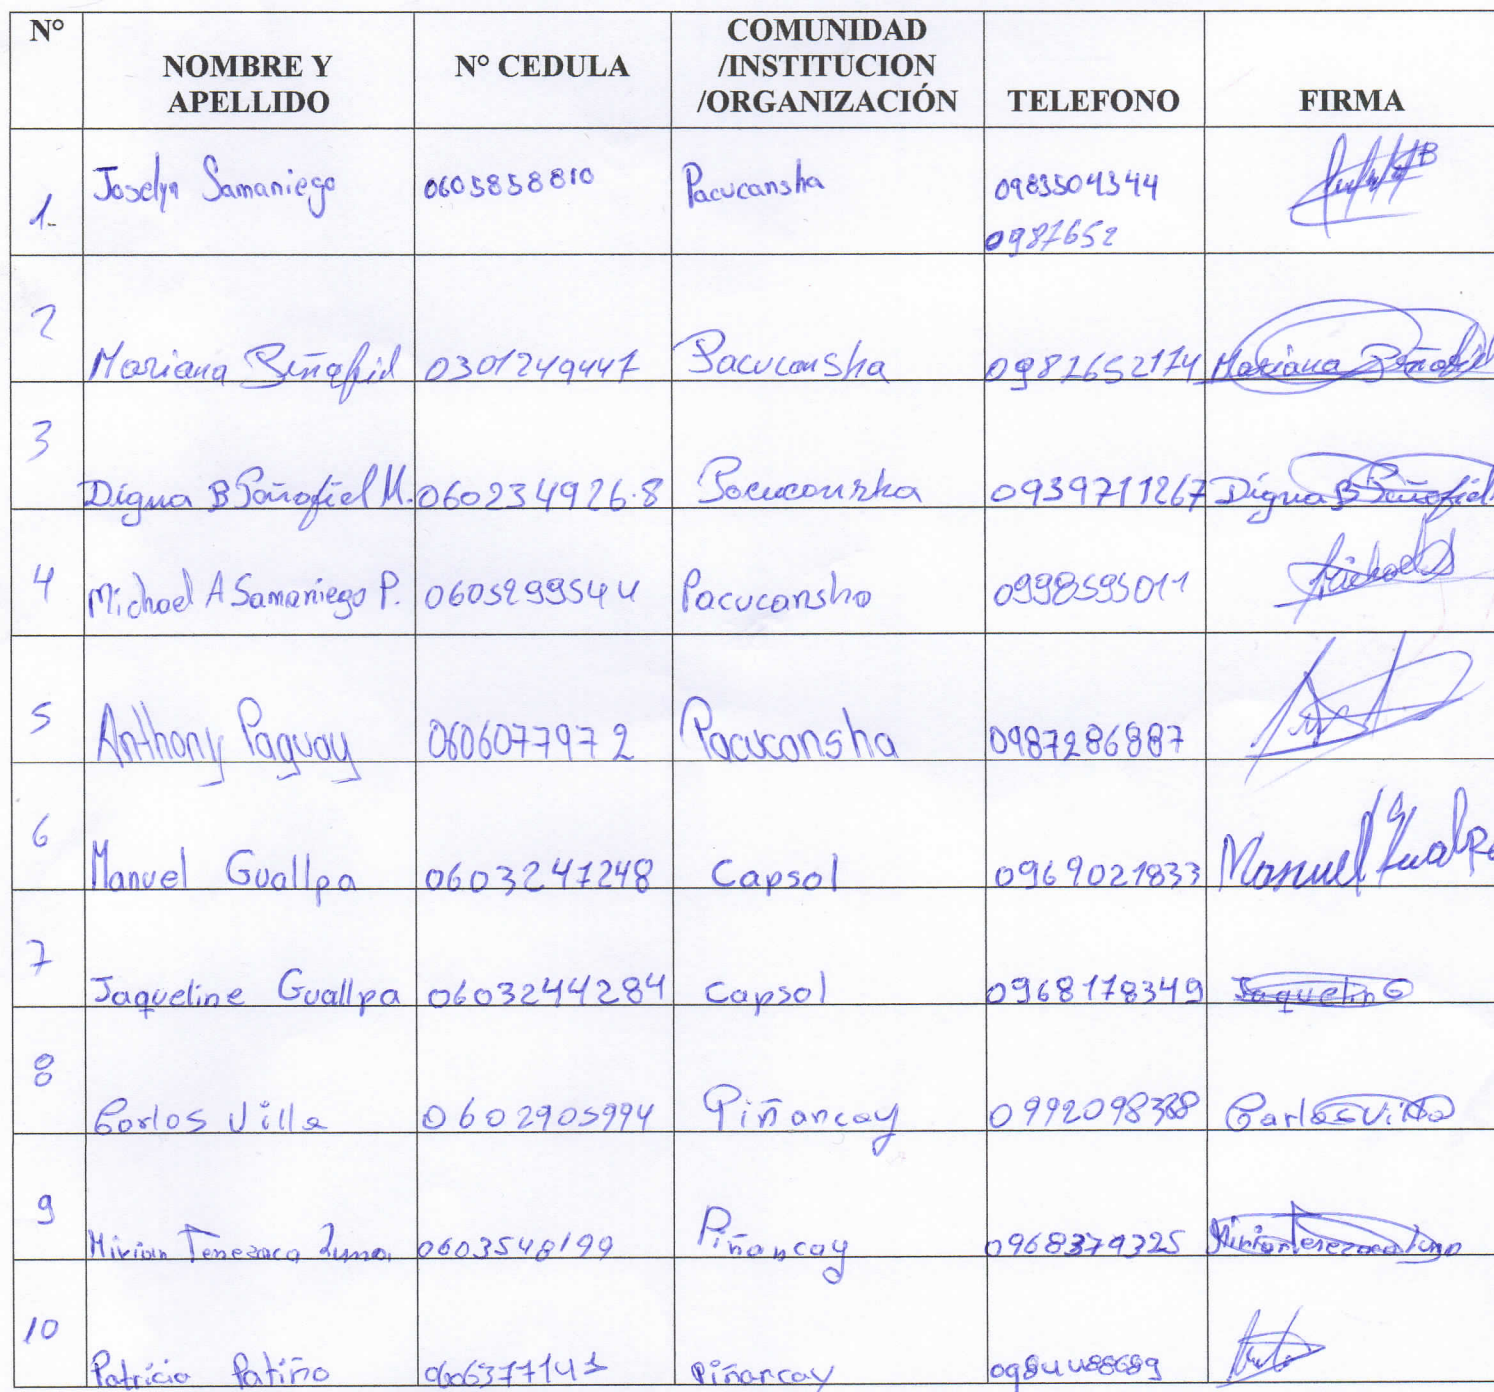 N° NOMBRE Y APELLIDO N° CEDULA COMUNIDAD /INSTITUCION /ORGANIZACIÓN TELEFONO FIRMA
1- Joselyn Samaniego 0605858810 Pacucansha 0983504344
0987652
2 Mariana Peñafiel 0301249447 Pacucansha 0987652174 Mariana Peñafiel
3 Digna B Peñafiel M. 060234926-8 Pacucansha 0939711267 Digna B Peñafiel
4 Michael A Samaniego P. 0605299544 Pacucansha 0998595011 Michael S
5 Anthony Paguay 0606077972 Pacucansha 0987286887
6 Manuel Guallpa 0603247248 Capsol 0969021833 Manuel Guallpa
7 Jaqueline Guallpa 0603244284 Capsol 0968178349 Jaquelin G
8 Carlos Villa 0602905994 Piñancay 0992098328 Carlos Villa
9 Mirian Tenezaca Zuma 0603548199 Piñancay 0968379325 Mirian Tenezaca
10 Patricio Patiño 0606377143 Piñancay 0984488689